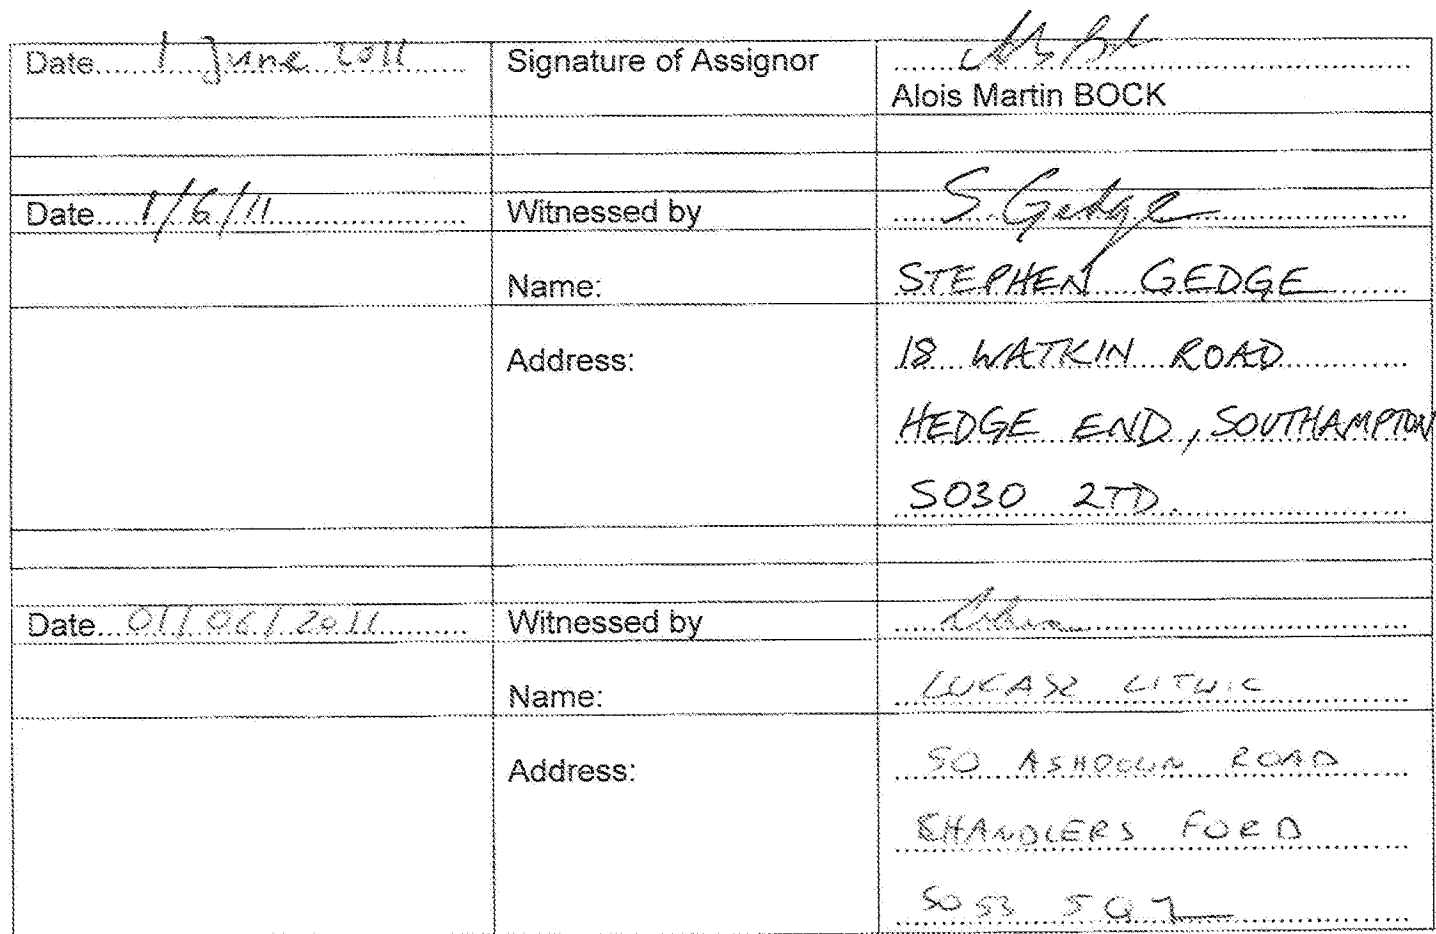 Date 1 June 2011 Signature of Assignor
Alois Martin BOCK
Date 1/6/11 Witnessed by S Gedge
Name: STEPHEN GEDGE
Address: 18 WATKIN ROAD
HEDGE END, SOUTHAMPTON
SO30 2TD.
Date 01/06/2011 Witnessed by
Name: LUKASZ LITWIC
Address: 50 ASHDOWN ROAD
CHANDLERS FORD
SO53